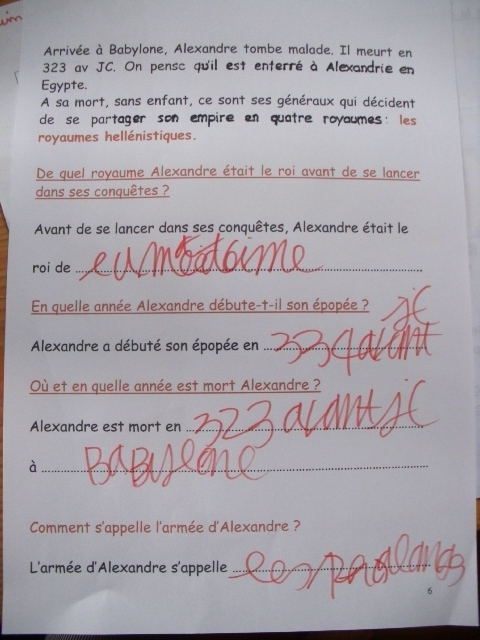 Arrivée à Babylone, Alexandre tombe malade. Il meurt en
323 av JC. On pense qu'il est enterré à Alexandrie en
Egypte.
A sa mort, sans enfant, ce sont ses généraux qui décident
de se partager son empire en quatre royaumes: les
royaumes hellénistiques.
De quel royaume Alexandre était le roi avant de se lancer
dans ses conquêtes ?
Avant de se lancer dans ses conquêtes, Alexandre était le
roi de
En quelle année Alexandre débute-t-il son épopée ?
jc
Alexandre a débuté son épopée en 334 avant
Où et en quelle année est mort Alexandre ?
Alexandre est mort en 323 avant jc
à Babylone
Comment s'appelle l'armée d'Alexandre ?
L'armée d'Alexandre s'appelle les
6